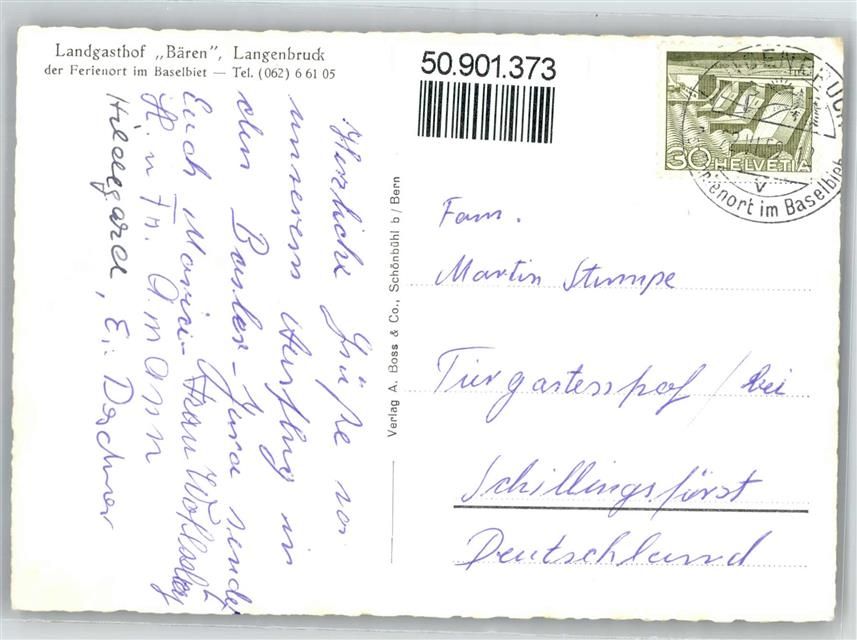 Landgasthof „Bären”, Langenbruck
der Ferienort im Baselbiet — Tel. (062) 6 61 05
Herzliche Grüße von
unserem Ausflug in
den Basler-Jura sendet
Euch Marie - Frau
H. u Fr. Amann
Hildegard, E.
Verlag A. Boss & Co., Schönbühl b/Bern
50.901.373
30 HELVETIA
LANGENBRUCK
Ferienort im Baselbiet
Fam.
Martin Stumpe
Tiergartesshof / bei
Schillingsfürst
Deutschland